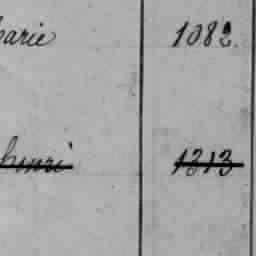 Marie 1082.
henri 1313